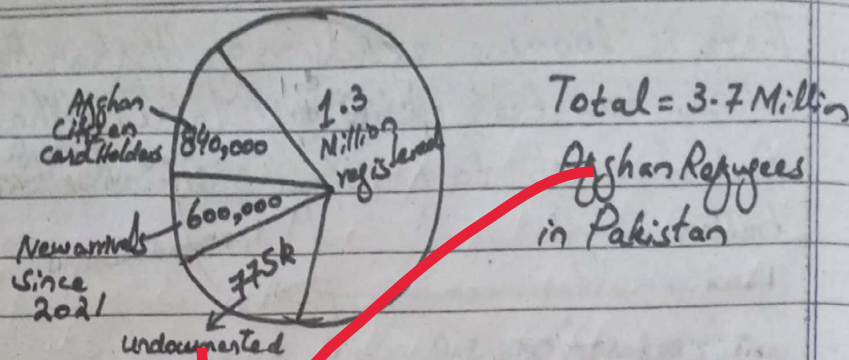 Afghan
Citizen
Card Holders
840,000
1.3
Million
registered
600,000
New arrivals
since
2021
775k
undocumented
Total = 3.7 Million
Afghan Refugees
in Pakistan